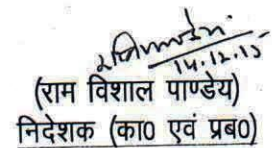 14.12.15
(राम विशाल पाण्डेय)
निदेशक (का0 एवं प्रब0)